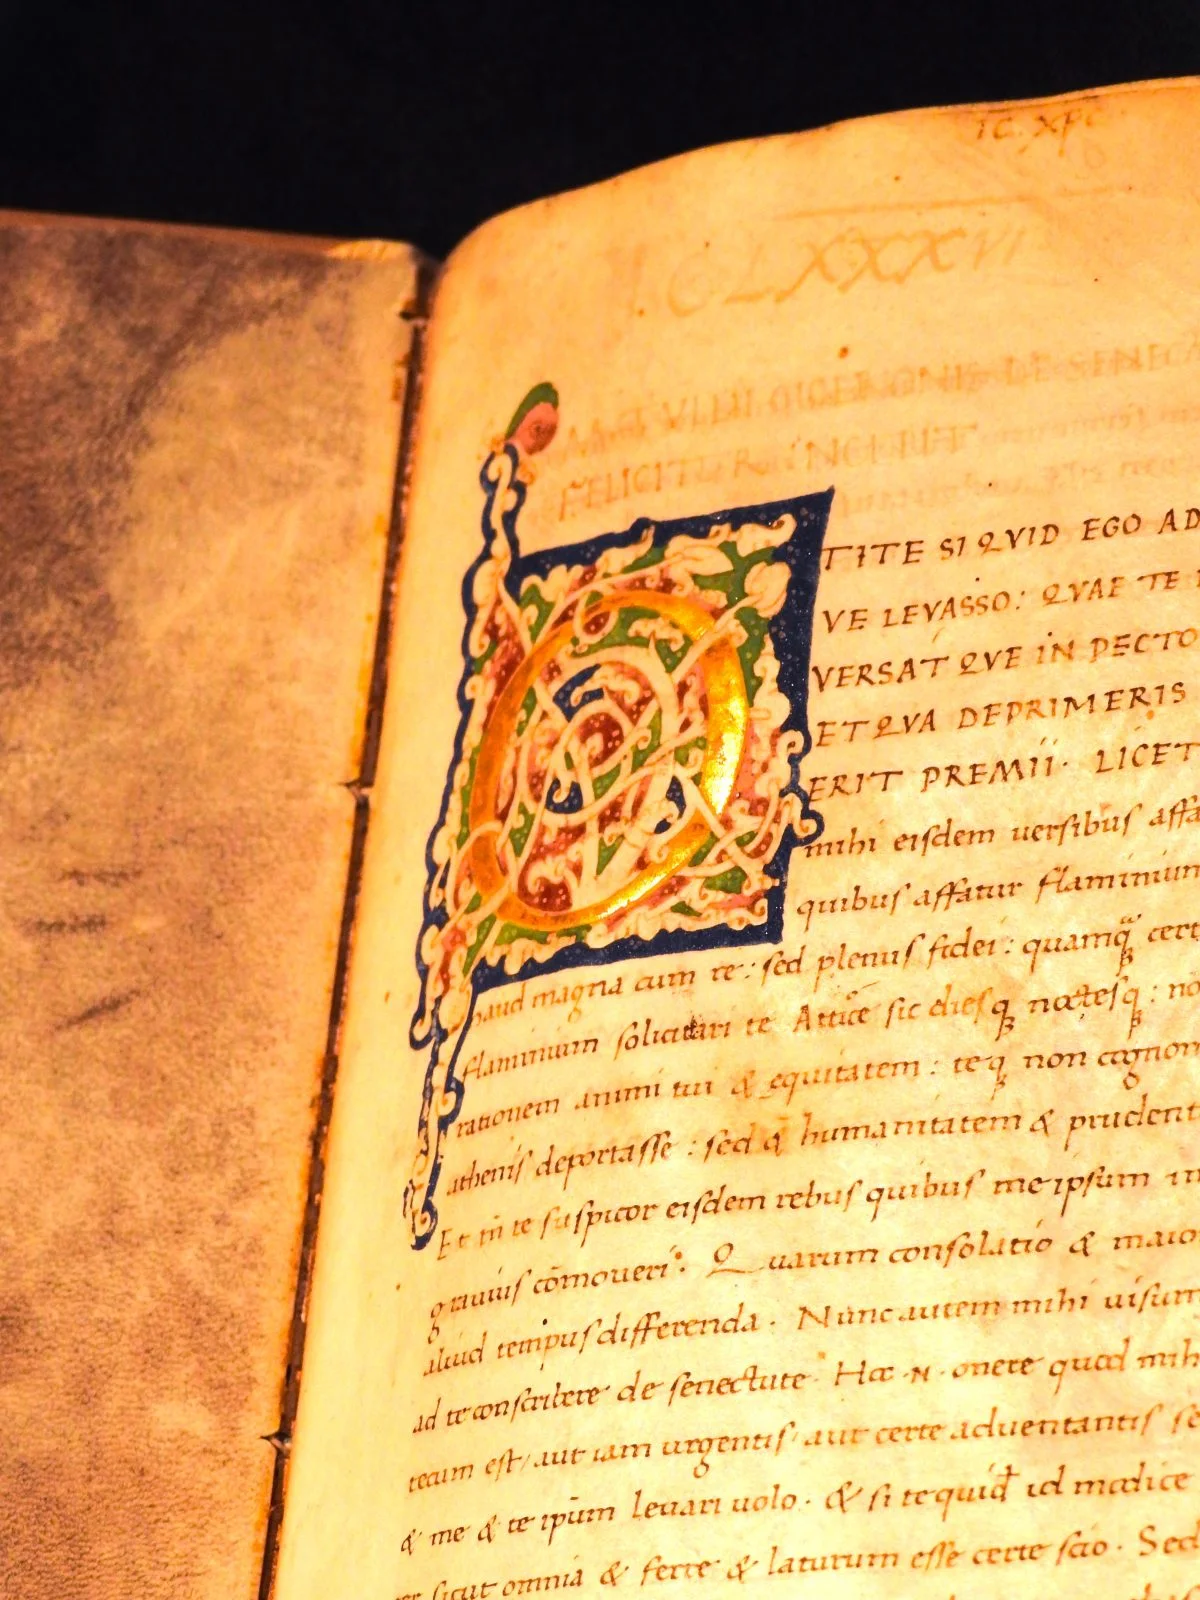 IC. XPC
CLXXXVI
DE SENEC
FELICITER INCIPIT
O
TITE SI QVID EGO AD
VE LEVASSO: QVAE TE
VERSAT QVE IN PECTO
ET QVA DEPRIMERIS
ERIT PREMII· LICET
mihi eiſdem verſibuſ affa
quibuſ affatur flaminium
haud magna cum re: ſed plenuſ fidei: quamq̃ cert
flaminium ſolicitari te Attice ſic dieſq noctesq: no
rationem animi tui & equitatem: teq non cognom
atheniſ deportaſſe: ſed & humanitatem & prudent
Et m̄ te ſuſpicor eiſdem rebuſ quibuſ meipſum in
grauiuſ cōmoueri: Quarum conſolatio & maio
aliud tempuſ differenda· Nunc autem mihi uiſum
ad te conſcribere de ſenectute· Hoc ·N· onere quod mih
tecum eſt/ aut iam urgentiſ/ aut certe aduentantiſ ſe
& me & te ipſum leuari uolo· & ſi te quid̄ id modice
ſicut omnia & ferre & laturum eſſe certe ſcio· Sed